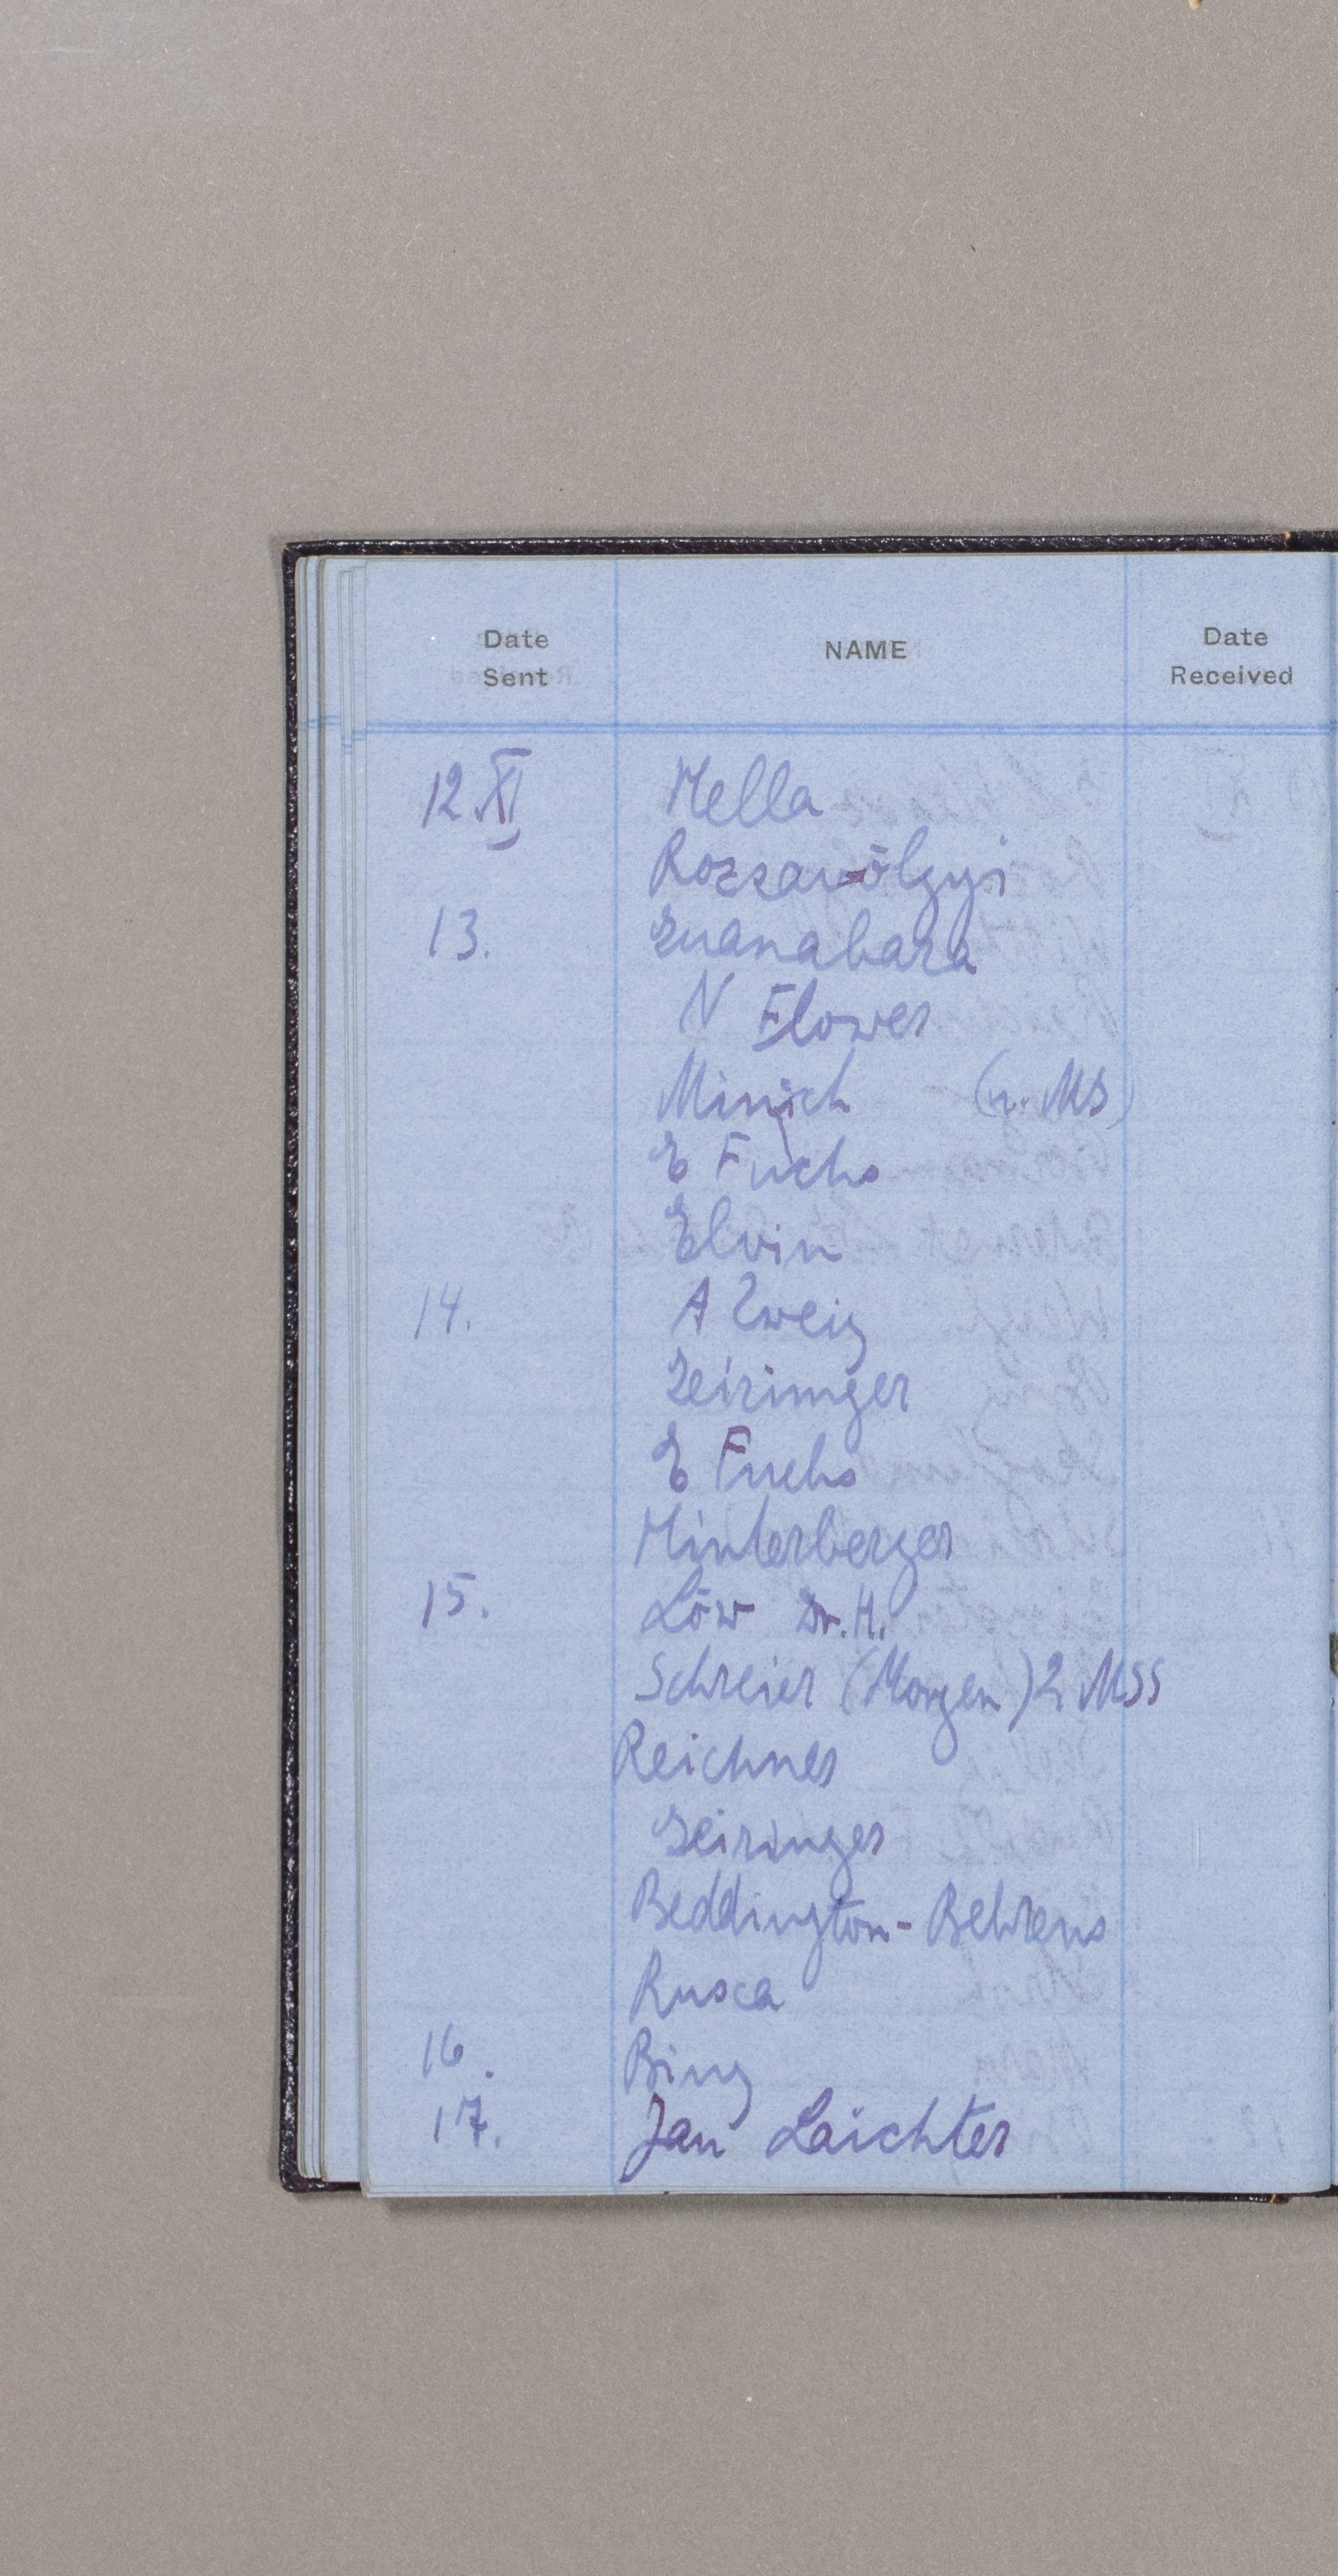 Date Sent NAME Date Received
12.XI Hella
Rozsavölgyi
13. Guanabara
N Flower
Minich (u. MS)
E Fuchs
Elvin
14. A Zweig
Geiringer
E Fuchs
Hinterberger
15. Löw Dr. H.
Schreier (Morgen) 2 MSS
Reichner
Geiringer
Beddington-Behrens
Rusca
16. Bing
17. Jan Laichter